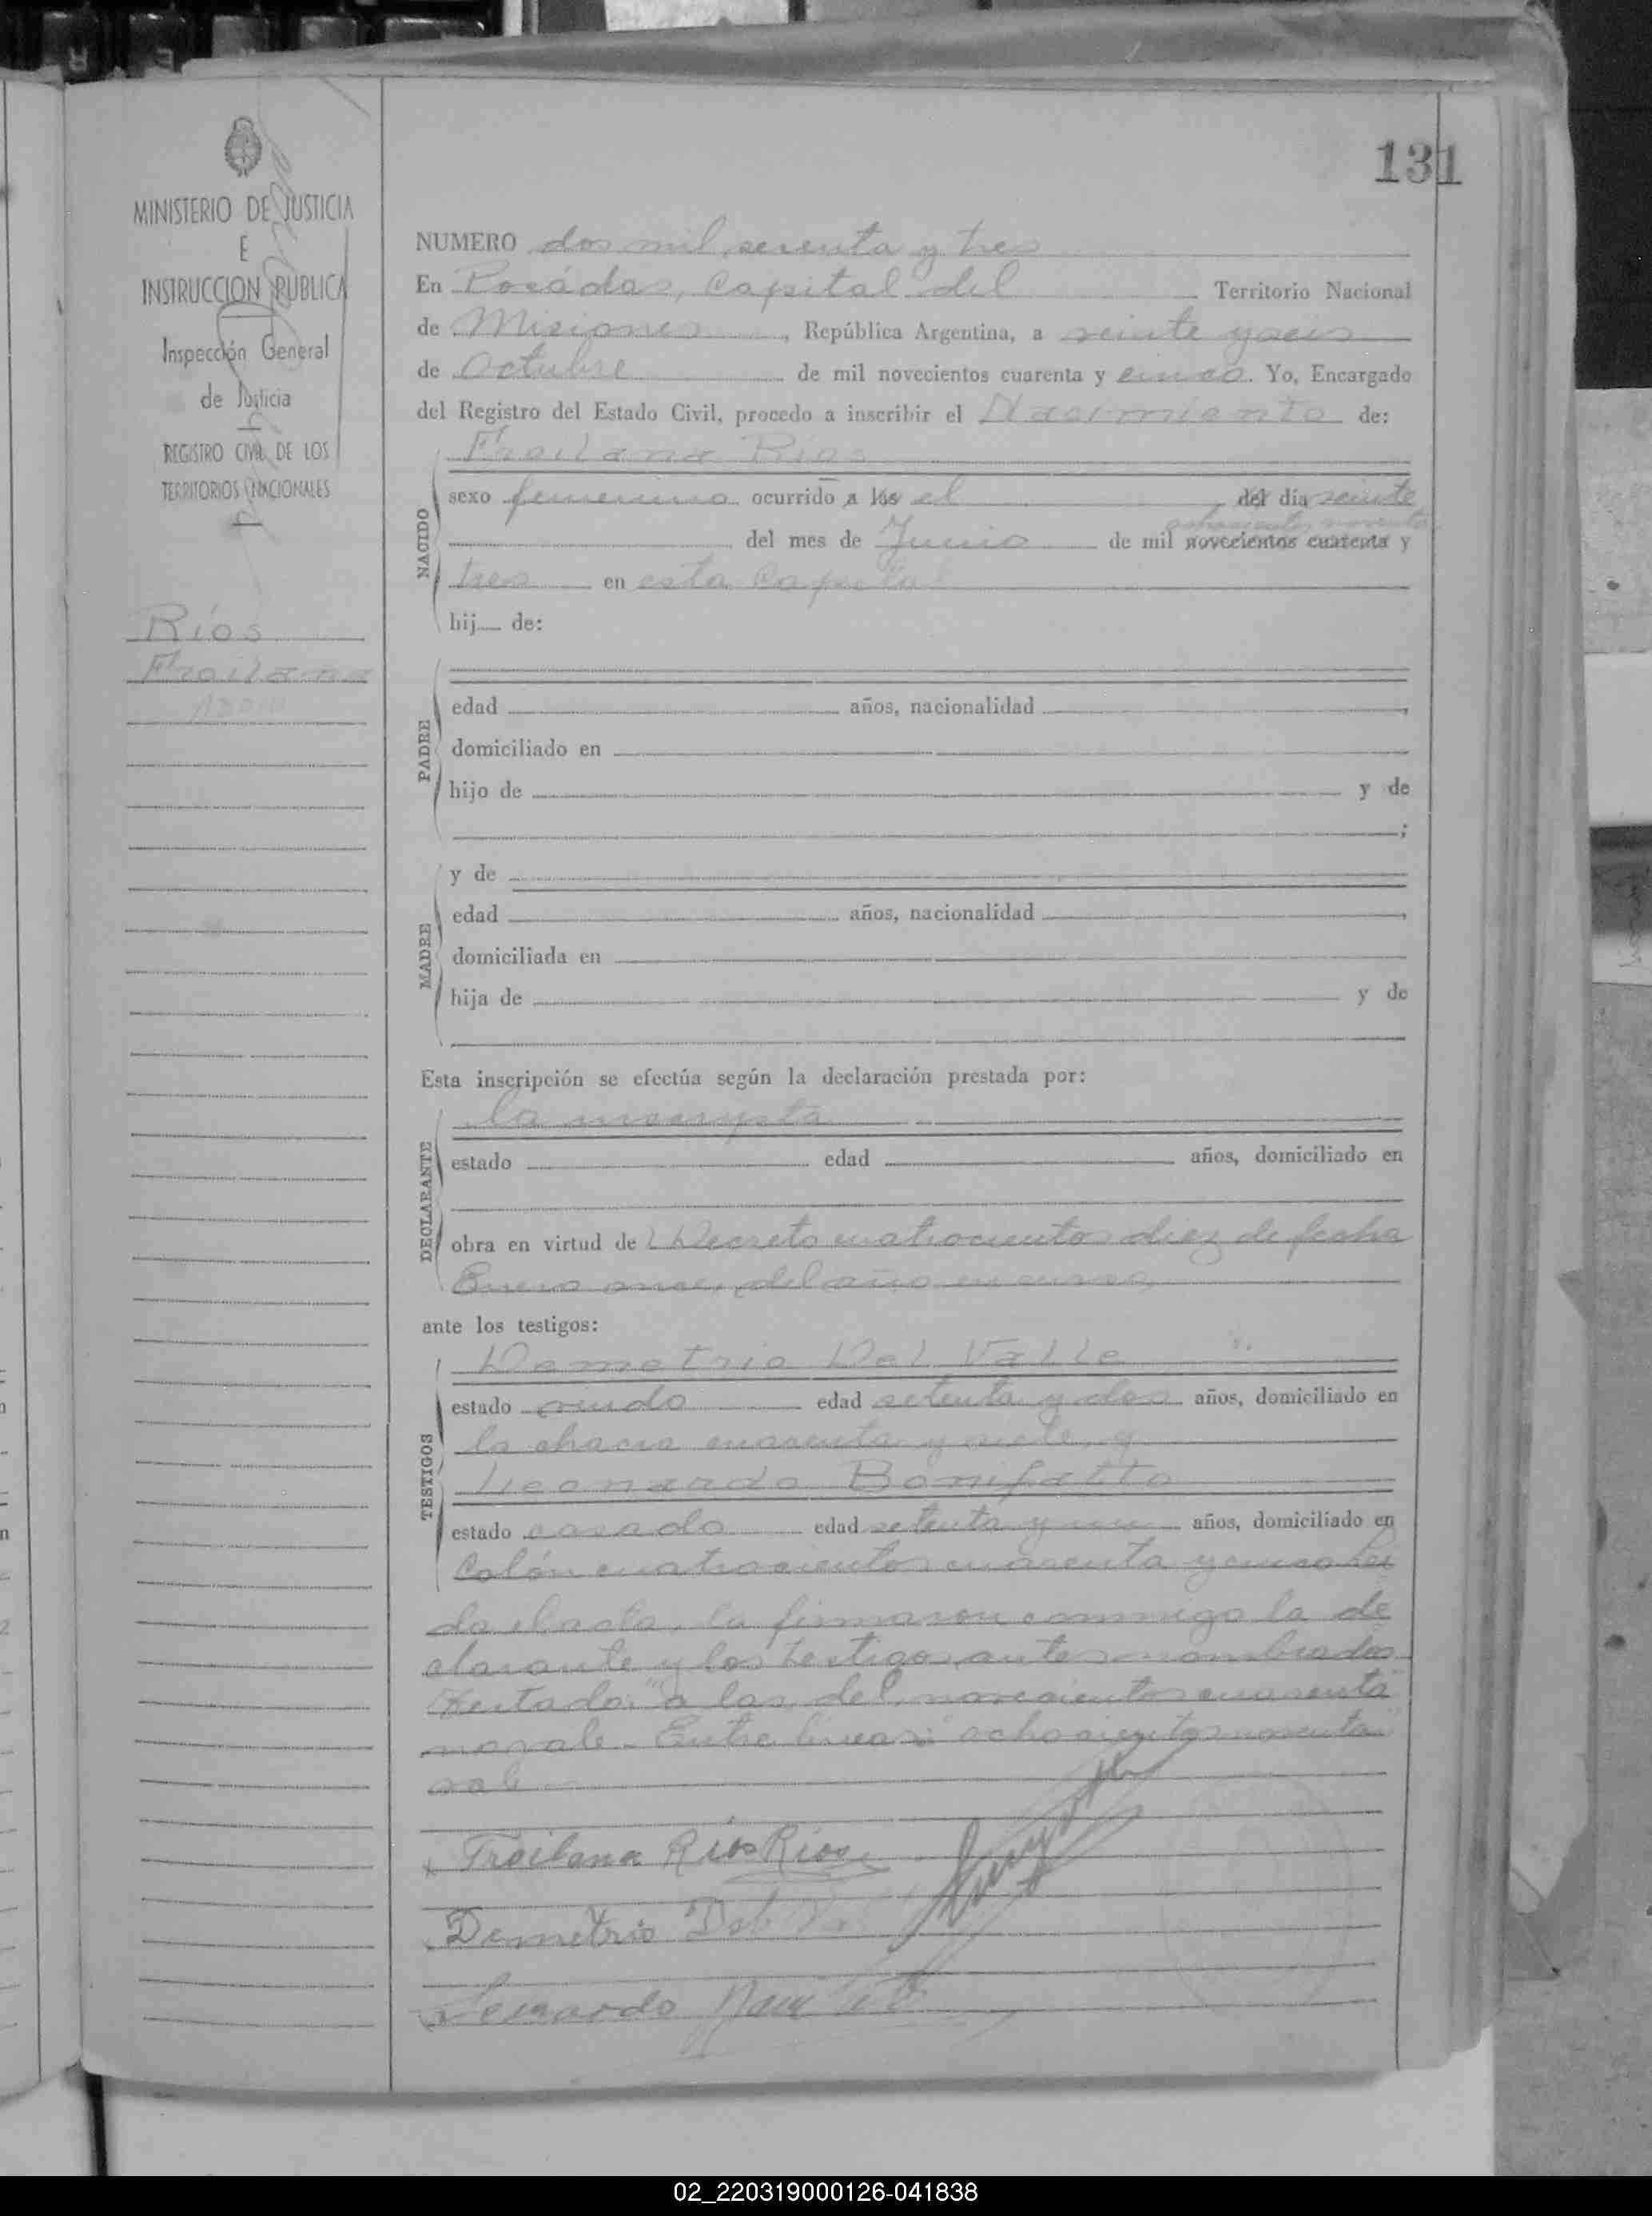 131
MINISTERIO DE JUSTICIA
E
INSTRUCCION PUBLICA
Inspección General
de Justicia
REGISTRO CIVIL DE LOS
TERRITORIOS NACIONALES
Ríos
Froilana
NUMERO dos mil sesenta y tres
En Posádas, Capital del Territorio Nacional
de Misiones, República Argentina, a veinte y seis
de Octubre de mil novecientos cuarenta y cinco. Yo, Encargado
del Registro del Estado Civil, procedo a inscribir el Nacimiento de:
Froilana Ríos
NACIDO
sexo femenino ocurrido a las el del día veinte
ochocientos noventa
del mes de Junio de mil novecientos cuarenta y
tres en esta Capital
hij de:
PADRE
edad años, nacionalidad ,
domiciliado en
hijo de y de
;
MADRE
y de
edad años, nacionalidad ,
domiciliada en
hija de y de
Esta inscripción se efectúa según la declaración prestada por:
DECLARANTE
la inscripta
estado edad años, domiciliado en
obra en virtud de Decreto cuatrocientos diez de fecha
Enero once, del año en curso,
ante los testigos:
TESTIGOS
Demetrio Del Valle
estado viudo edad setenta y dos años, domiciliado en
la chacra cuarenta y siete, y
Leonardo Bonifatto
estado casado edad setenta y un años, domiciliado en
Colón cuatrocientos cuarenta y cinco Leí
da el acta, la firmaron conmigo la de
clarante y los testigos antes nombrados
Testado: "a las, del, novecientos cuarenta"
no vale - Entre lineas: "ochocientos noventa"
vale
Froilana Ríos Rios
Demetrio Del
Leonardo
02_220319000126-041838